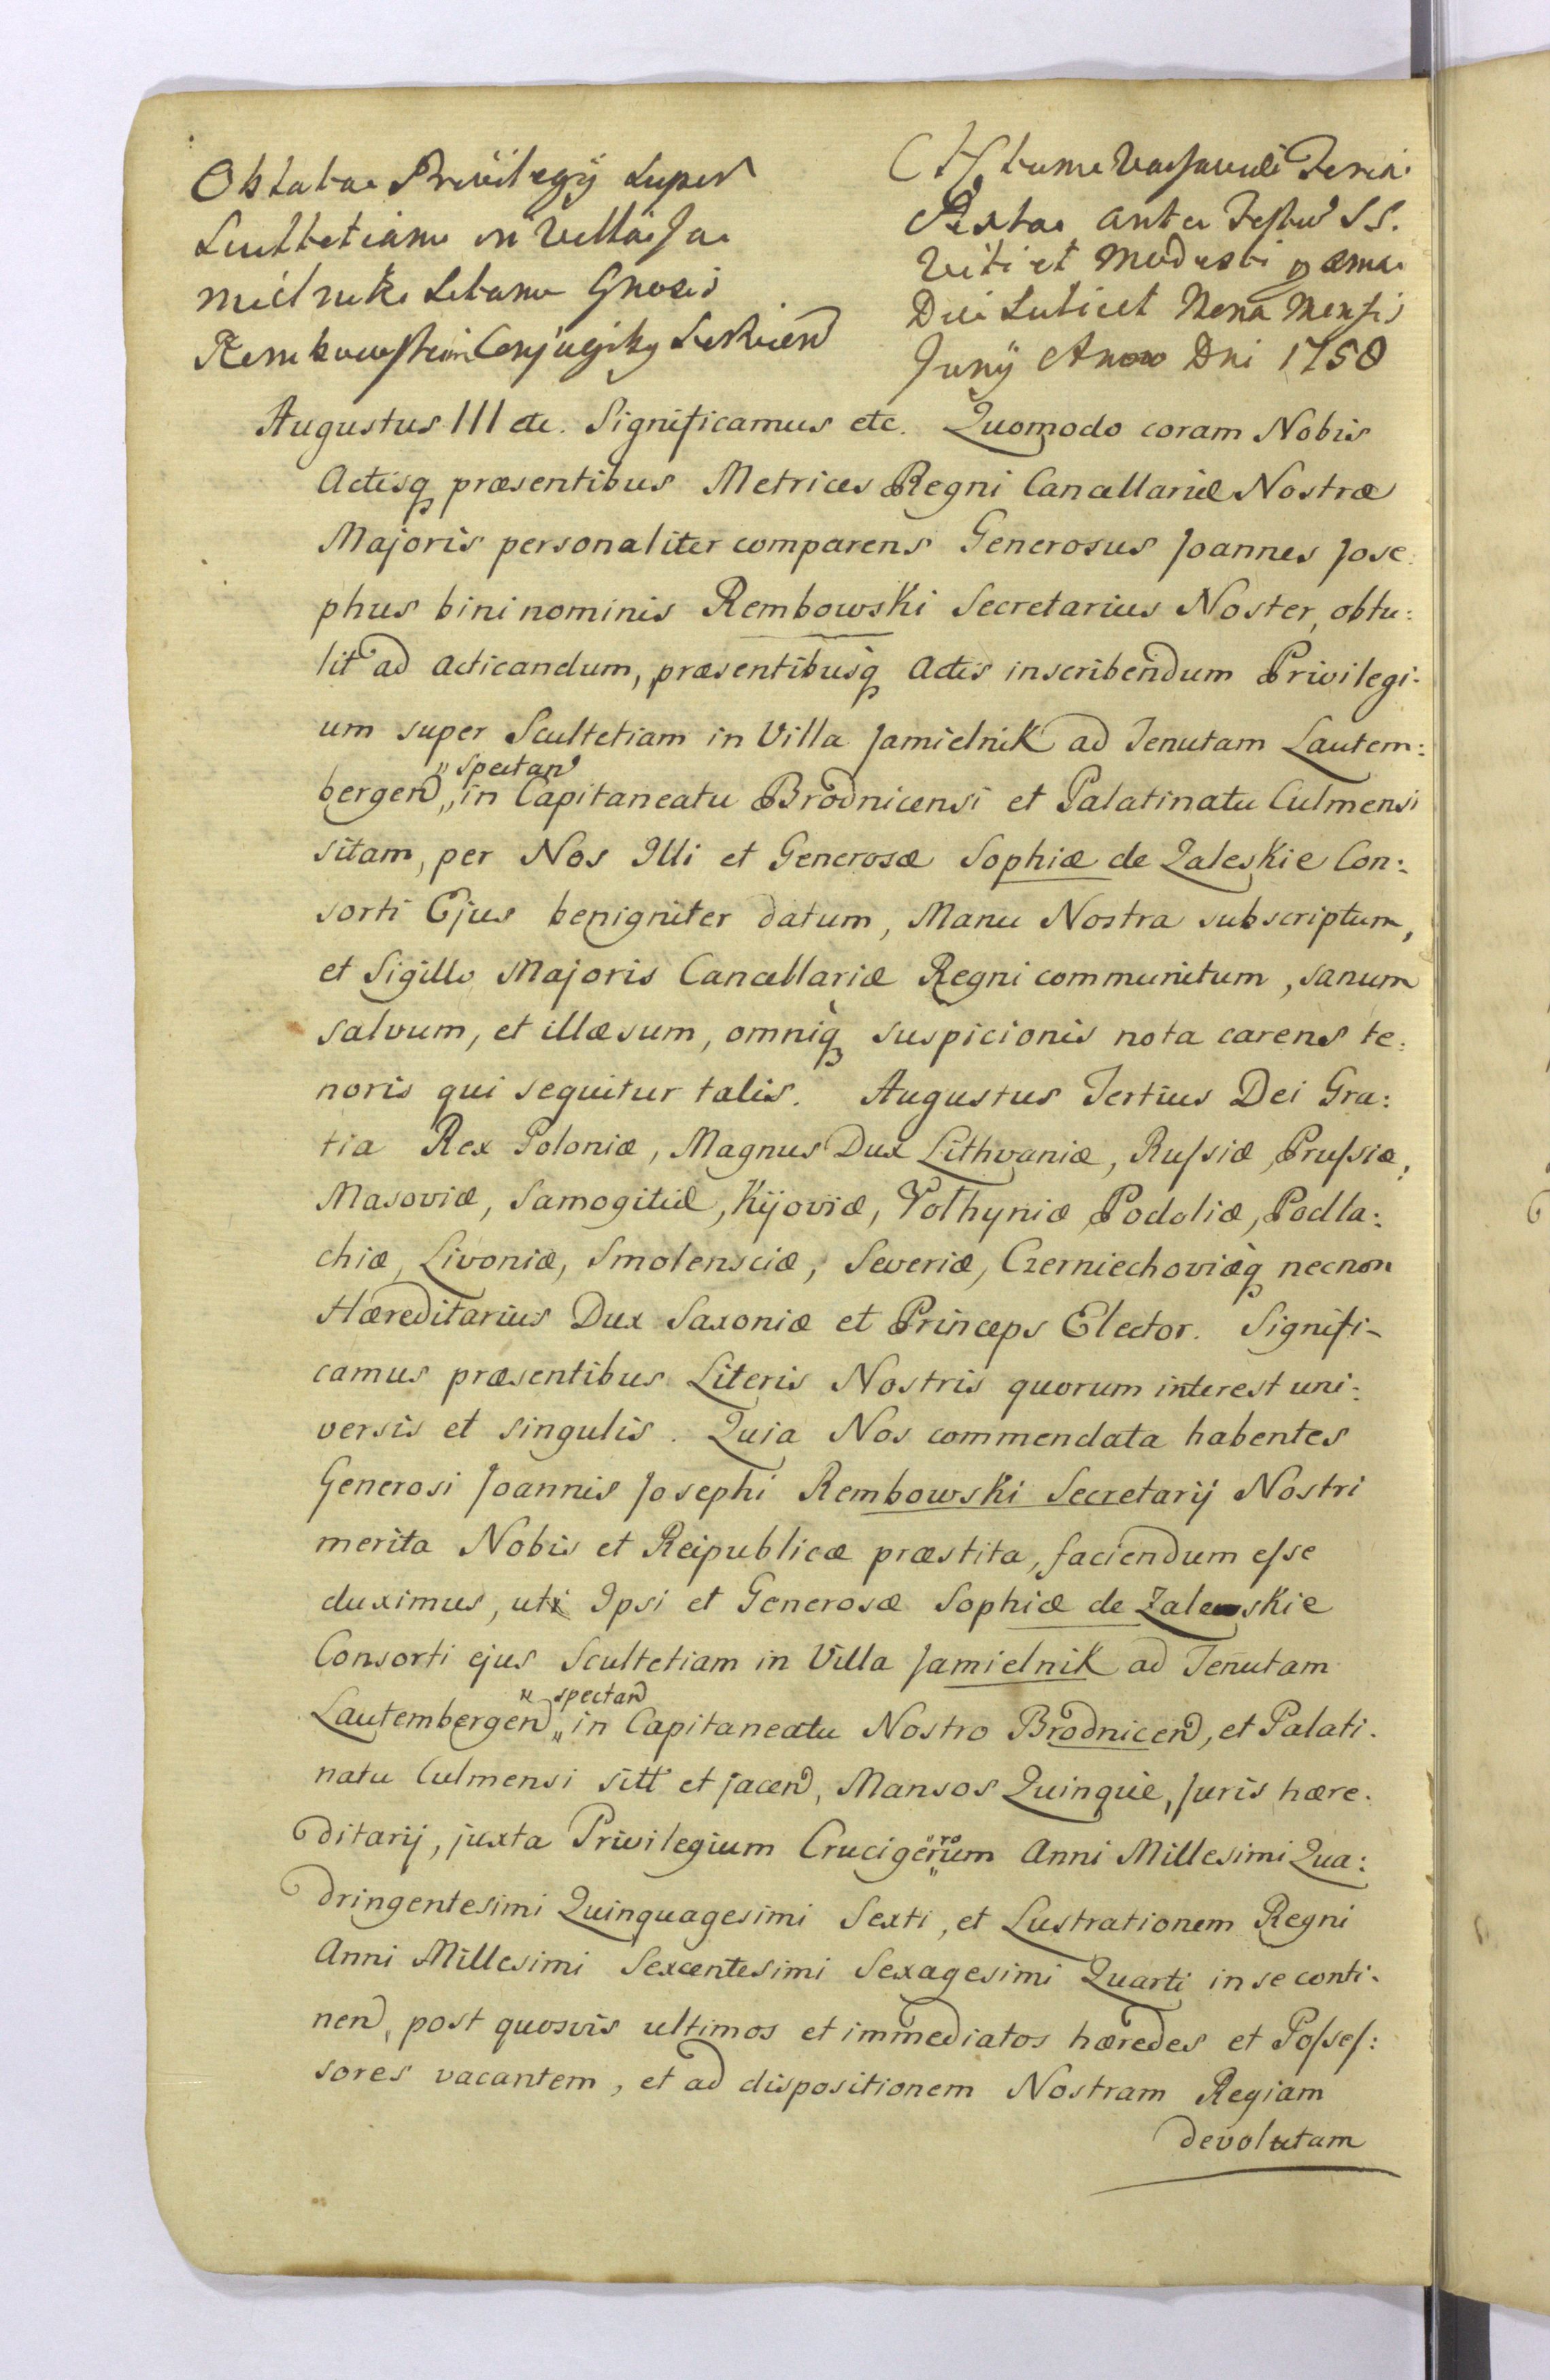 Oblata Privilegij super
Scultetiam in Villa Ja
mielnik sitam Gnosis
Rembowskim Conjugibq Servien
Actum Varsaviæ Feria
Sexta ante Festum S.S.
Viti et Modesti
Die Scilicet Nona Mensis
Junij Anno Dni 1758
Augustus III etc. Significamus etc. Quomodo coram Nobis
Actisq præsentibus Metrices Regni Cancellariæ Nostræ
Majoris personaliter comparens Generosus Joannes Jose:
phus bini nominis Rembowski Secretarius Noster, obtu:
lit ad acticandum, præsentibusq actis inscribendum Privilegi-
um super Scultetiam in Villa Jamielnik ad Tenutam Lautem:
" spectan
bergen „ in Capitaneatu Brodnicensi et Palatinatu Culmensi
sitam, per Nos Illi et Generosæ Sophiæ de Zaleskie Con:
sorti Ejus benigniter datum, Manu Nostra subscriptum,
et Sigillo Majoris Cancellariæ Regni communitum, sanum
salvum, et illæsum, omniq suspicionis nota carens te:
noris qui sequitur talis. Augustus Tertius Dei Gra:
tia Rex Poloniæ, Magnus Dux Lithvaniæ, Russiæ, Prussiæ,
Masoviæ, Samogitiæ, Kijoviæ, Volhyniæ, Podoliæ, Podla:
chiæ, Livoniæ, Smolensciæ, Severiæ, Czerniechoviæq necnon
Hæreditarius Dux Saxoniæ et Princeps Elector. Signifi-
camus præsentibus Literis Nostris quorum interest uni:
versis et singulis. Quia Nos commendata habentes
Generosi Joannis Josephi Rembowski Secretarij Nostri
merita Nobis et Reipublicæ præstita, faciendum esse
duximus, uti Ipsi et Generosæ Sophiæ de Zaleskie
Consorti ejus Scultetiam in Villa Jamielnik ad Tenutam
" spectan
Lautembergen „ in Capitaneatu Nostro Brodnicen, et Palati-
natu Culmensi sitt et jacen, Mansos Quinque, Juris hære-
ditarij, juxta Privilegium Crucigerorum Anni Millesimi Qua:
dringentesimi Quinquagesimi Sexti, et Lustrationem Regni
Anni Millesimi Sexcentesimi Sexagesimi Quarti in se conti-
nen, post quosvis ultimos et immediatos hæredes et Posses:
sores vacantem, et ad dispositionem Nostram Regiam
devolutam